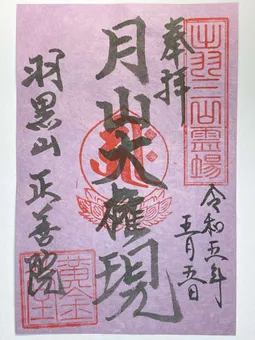 出羽三山霊場
奉拝
令和五年
五月五日
月山大権現
羽黒山 正善院
黄金